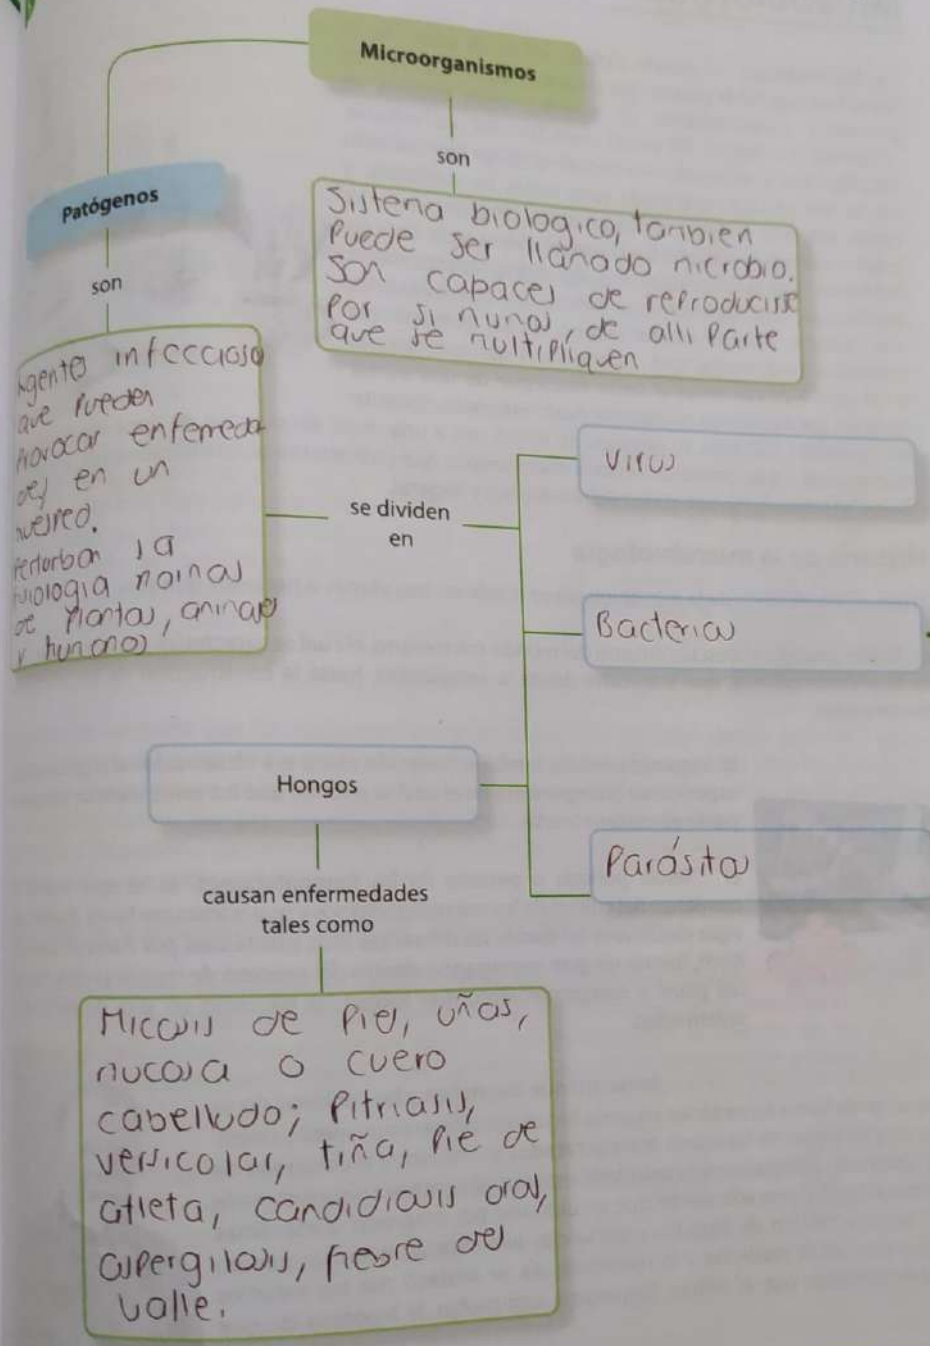 Microorganismos
son
Sistema biologico, tanbien
Puede ser llanado nicrobio.
Son capaces de reproducirse
Por si nunos, de alli Parte
que se nultipliquen
Patógenos
son
Agentes infeccioso
que Pueden
Provocar enferneda
des en un
huesped.
Perturban la
fisiologia nornal
de Plantas, aninales
y hunanos
se dividen
en
Virus
Bacterias
Parásitos
Hongos
causan enfermedades
tales como
Micosis de Piel, uñas,
nucosa o cuero
cabelludo; Pitriasis,
versicolar, tiña, Pie de
atleta, candidiasis oral,
aspergilosis, fiebre del
valle.